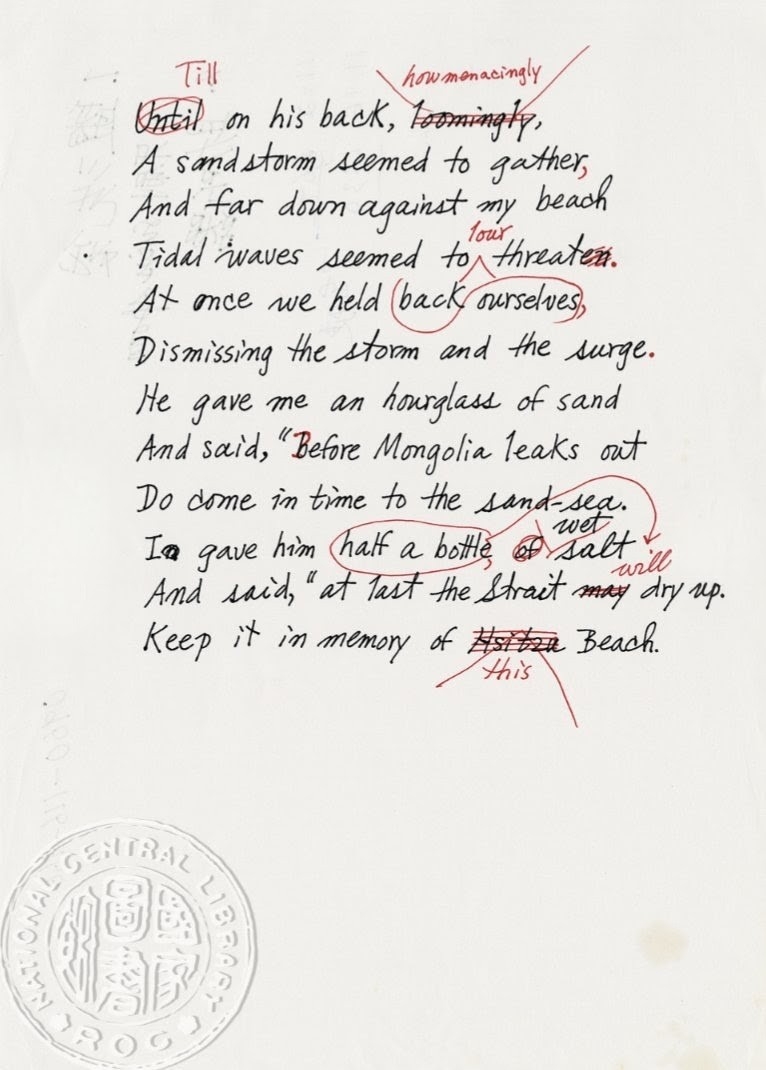 Till
how menacingly
Until on his back, loomingly,
A sandstorm seemed to gather,
And far down against my beach
lour
Tidal waves seemed to threaten.
At once we held back ourselves,
Dismissing the storm and the surge.
He gave me an hourglass of sand
And said, "Before Mongolia leaks out
Do come in time to the sand-sea.
wet
I gave him half a bottle, of salt
will
And said, "at last the Strait may dry up.
Keep it in memory of Hsitzu Beach.
this
NATIONAL CENTRAL LIBRARY
ROC